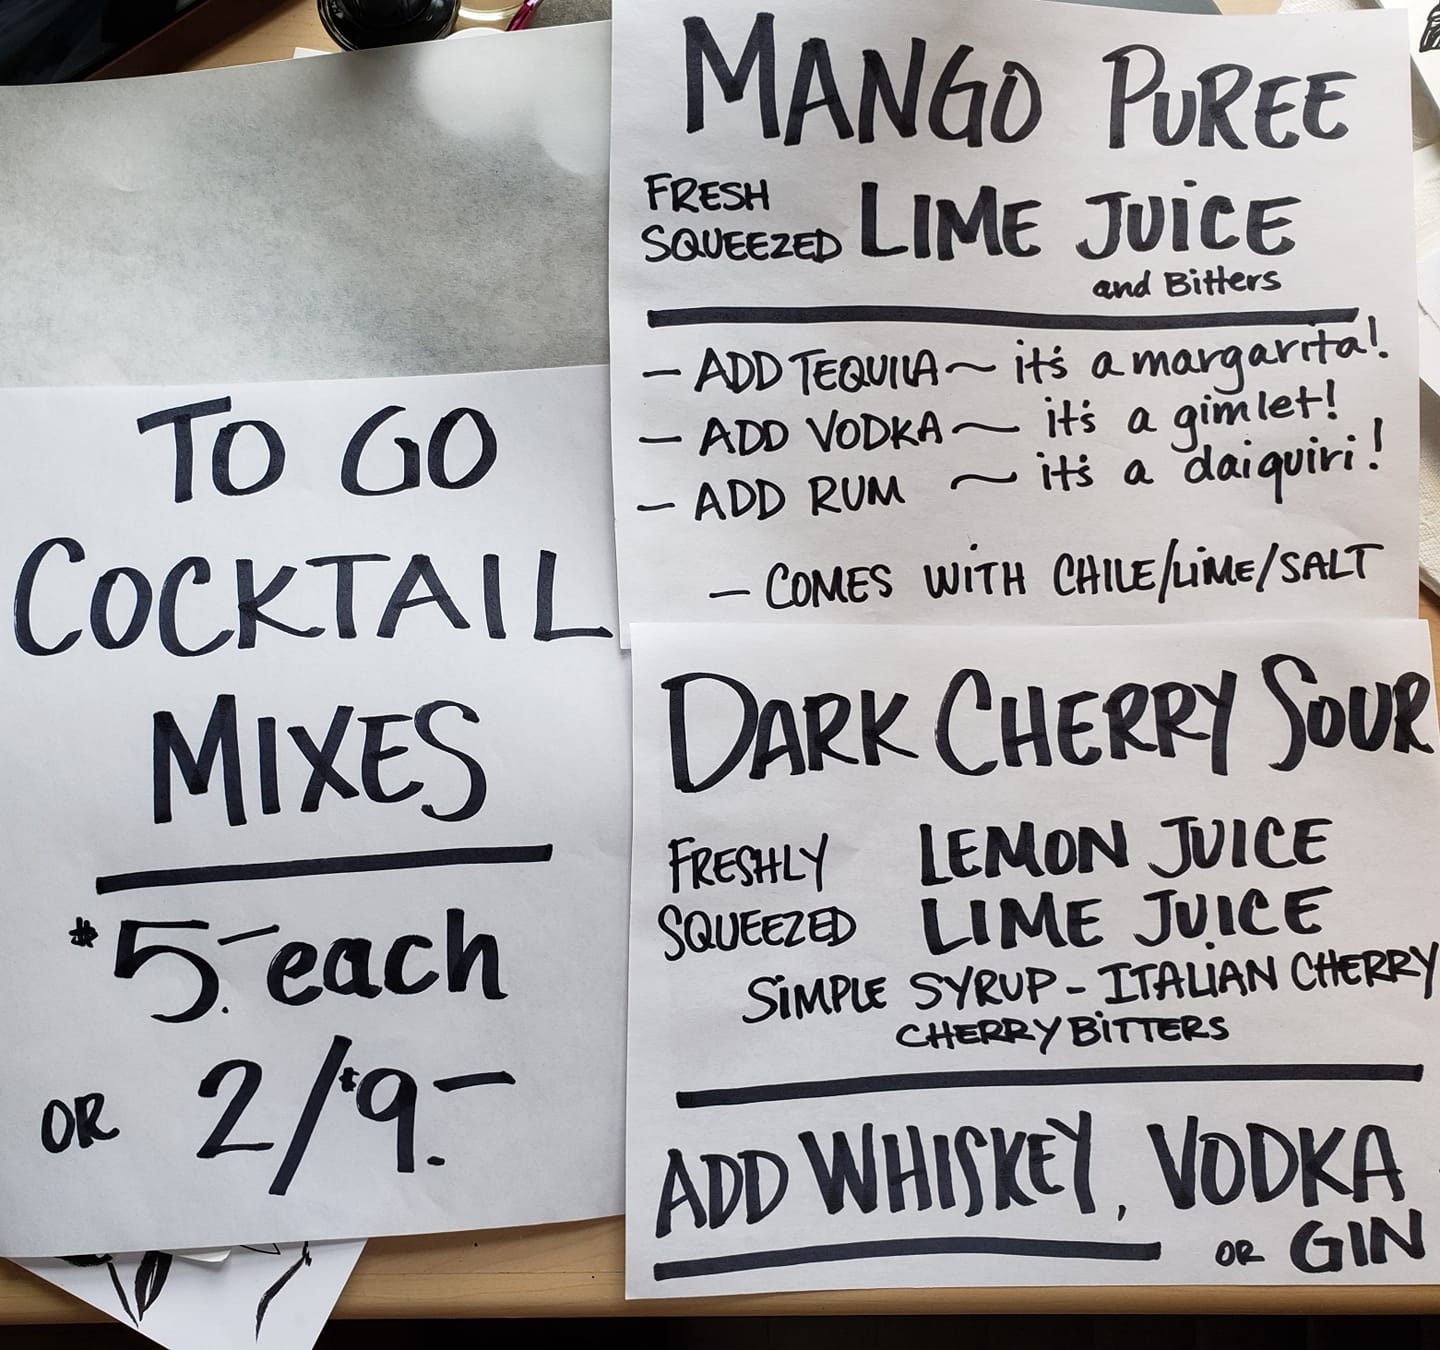 TO GO
COCKTAIL
MIXES
$5.- each
OR 2/$9.-
MANGO PUREE
FRESH
SQUEEZED LIME JUICE
and Bitters
- ADD TEQUILA ~ it's a margarita!
- ADD VODKA ~ it's a gimlet!
- ADD RUM ~ it's a daiquiri!
- COMES WITH CHILE/LIME/SALT
DARK CHERRY SOUR
FRESHLY LEMON JUICE
SQUEEZED LIME JUICE
SIMPLE SYRUP - ITALIAN CHERRY
CHERRY BITTERS
ADD WHISKEY, VODKA
OR GIN